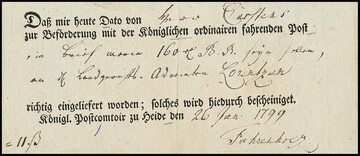 Daß mir heute Dato von Herrn Carstens
zur Beförderung mit der Königlichen ordinairen fahrenden Post
ein brief worin 160 B. seyn sollen,
an Landgerichts Advocaten Lorentzen
richtig eingeliefert worden; solches wird hiedurch bescheiniget.
Königl. Postcomtoir zu Heide den 26 Jan 1799
11 ß